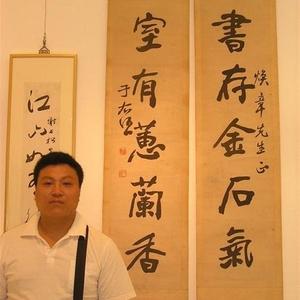 煥章先生正
書存金石氣
室有蕙蘭香
于右任
江